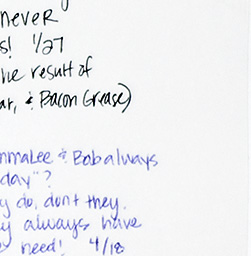 never
s! 1/27
he result of
ar, & Bacon Grease)
nmaLee & Bob always
day"?
y do, don't they.
y always have
need! 4/18